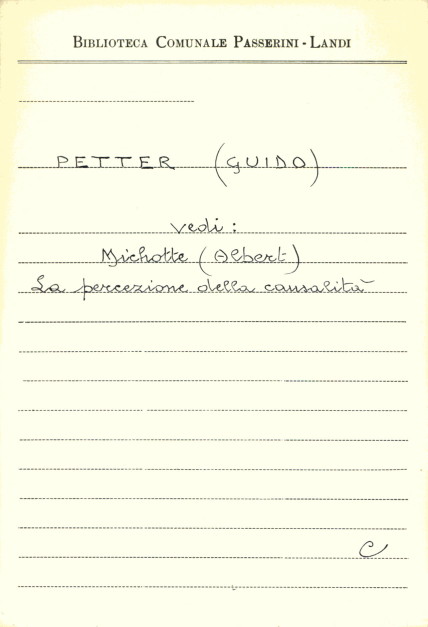 BIBLIOTECA COMUNALE PASSERINI - LANDI
PETTER (GUIDO)
vedi :
Michotte (Albert)
La percezione della causalità
C